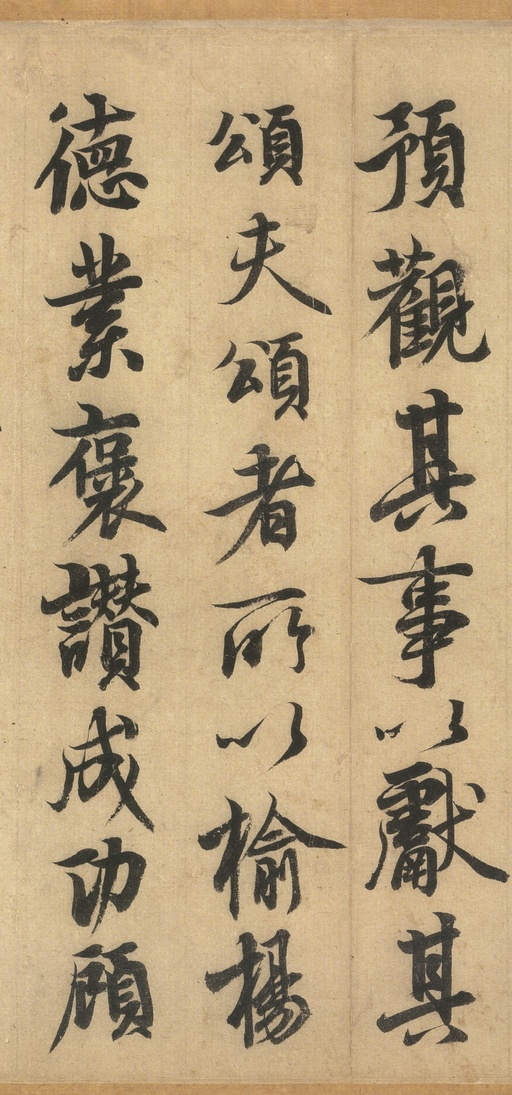 預觀其事以獻其
頌夫頌者所以榆楊
德業褒讃成功顧